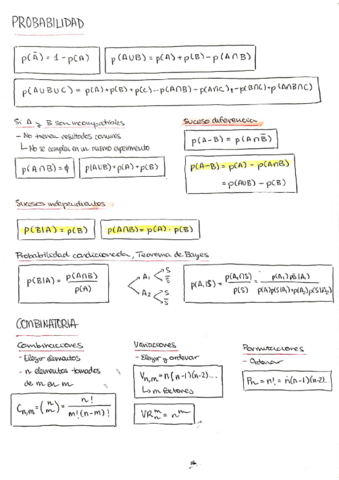 PROBABILIDAD
p(Ā) = 1 - p(A)   p(A∪B) = p(A) + p(B) - p(A∩B)
p(A∪B∪C) = p(A) + p(B) + p(C) - p(A∩B) - p(A∩C) - p(B∩C) + p(A∩B∩C)
Si A y B son incompatibles
- No tienen resultados comunes
↳ No se cumplen en un mismo experimento
p(A∩B) = ϕ   p(A∪B) = p(A) + p(B)
Suceso diferencia
p(A-B) = p(A∩B̄)
p(A-B) = p(A) - p(A∩B)
= p(A∪B) - p(B)
Sucesos independientes
p(B|A) = p(B)   p(A∩B) = p(A) · p(B)
Probabilidad condicionada, Teorema de Bayes
p(B|A) = p(A∩B) / p(A)
A₁ < S
S̄
A₂ < S
S̄
p(A₁|S) = p(A₁∩S) / p(S) = p(A₁)p(S|A₁) / p(A₁)p(S|A₁) + p(A₂)p(S|A₂)
COMBINATORIA
Combinaciones
- Elegir elementos
- n elementos tomados
de m en m
Cₙ,ₘ = (n m) = n! / m!(n-m)!
Variaciones
- Elegir y ordenar
Vₙ,ₘ = n(n-1)(n-2)...
↳ m factores
VRₙᵐ = nᵐ
Permutaciones
- Ordenar
Pₙ = n! = n(n-1)(n-2)...